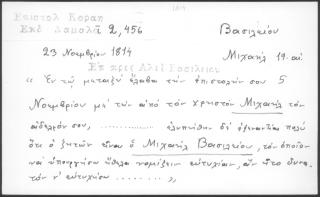 1814
Επιστολ Κοραη
Εκδ Δαμαλά 2,456
Βασιλείου
23 Νοεμβρίου 1814
Μιχαήλ 19. αἰ
Επ πρός Αλεξ Βασιλείου
« Ἐν τῷ μεταξὺ ἔλαβα τὴν ἐπιστολήν σου 5
Νοεμβρίου μὲ τὴν ἀπὸ τὸν χρηστὸν Μιχαήλ τὸν
ἀδελφόν σου, .......... ἐλυπήθην δι' πολὺ
ὅτι ὁ ζητῶν εἶναι ὁ Μιχαήλ Βασιλείου, τὸν ὁποῖον
νὰ ὑπουργήσω ἤθελα νομίζειν εὐτυχίαν, ἂν ἦτο δυνα-
τὸν ν' εὐτυχήσω ...... »,